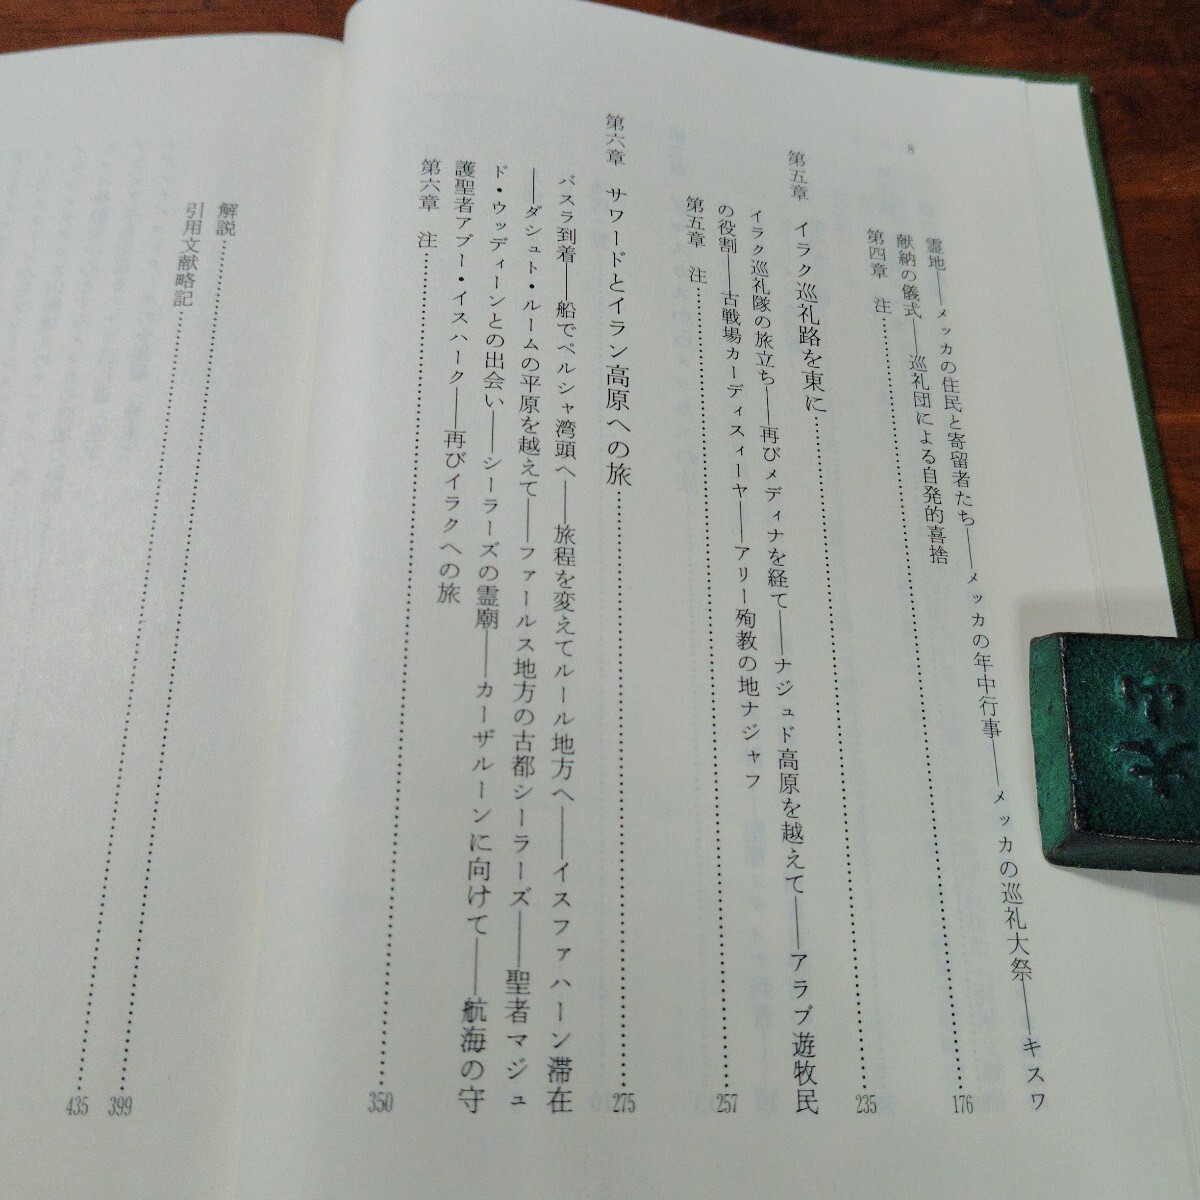 8
霊地――メッカの住民と寄留者たち――メッカの年中行事――メッカの巡礼大祭――キスワ
献納の儀式――巡礼団による自発的喜捨
第四章 注……………………176
第五章 イラク巡礼路を東に……………………235
イラク巡礼隊の旅立ち――再びメディナを経て――ナジュド高原を越えて――アラブ遊牧民
の役割――古戦場カーディスィーヤ――アリー殉教の地ナジャフ
第五章 注……………………257
第六章 サワードとイラン高原への旅……………………275
バスラ到着――船でペルシャ湾頭へ――旅程を変えてルール地方へ――イスファハーン滞在
――ダシュト・ルームの平原を越えて――ファールス地方の古都シーラーズ――聖者マジュ
ド・ウッディーンとの出会い――シーラーズの霊廟――カーザルーンに向けて――航海の守
護聖者アブー・イスハーク――再びイラクへの旅
第六章 注……………………350
解説……………………399
引用文献略記……………………435